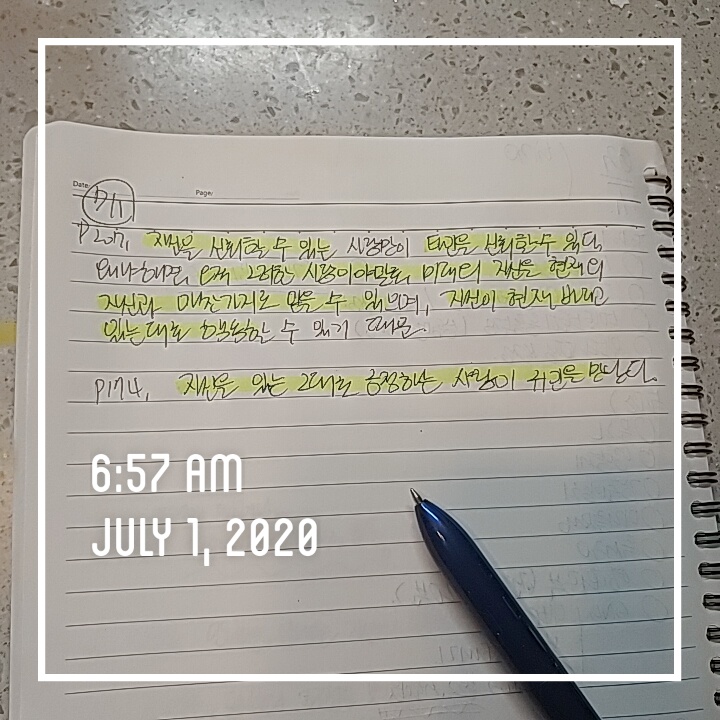 Date
Page
7/1
P207, 자신을 신뢰할 수 있는 사람만이 타인을 신뢰할 수 있다.
왜냐하면, 오직 그러한 사람이야말로, 미래의 자신을 현재의
자신과 마찬가지로 믿을 수 있으며, 자신이 현재 바라고
있는대로 행동할 수 있기 때문.
P174, 자신을 있는 그대로 긍정하는 사람이 귀인을 만난다.
6:57 AM
JULY 1, 2020